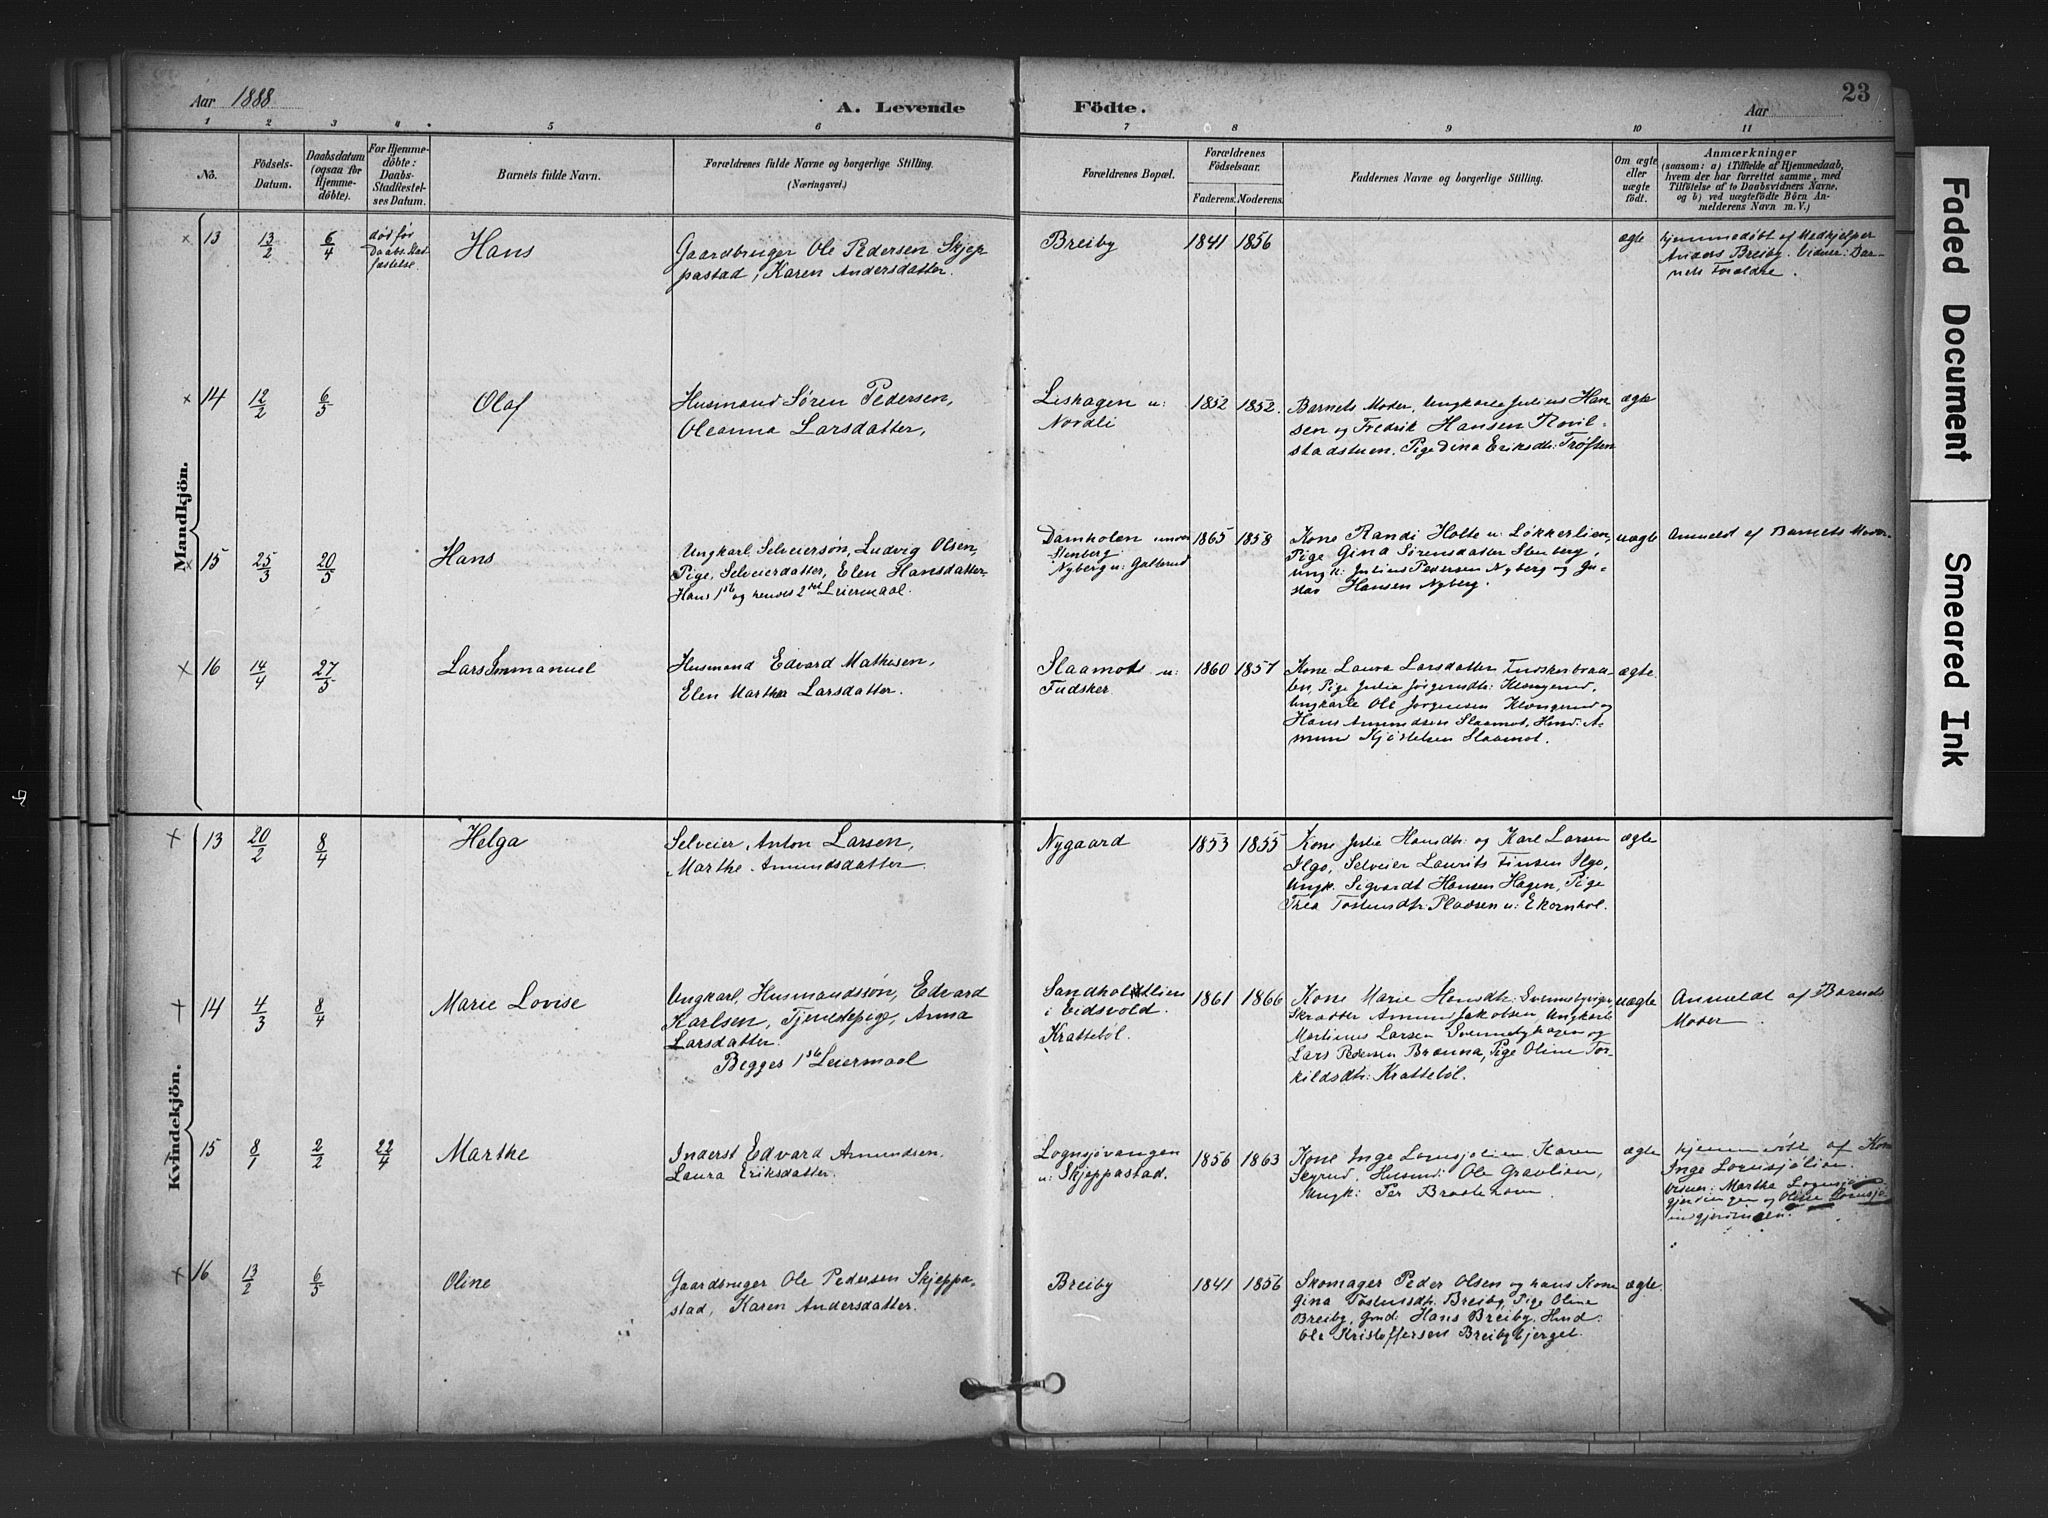 Aar 1888
A. Levende
Födte.
Aar
23
1 2 3 4 5 6 7 8 9 10 11
No.
Födsels-
Datum.
Daabsdatum
(ogsaa for
Hjemme-
döbte).
For Hjemme-
döbte:
Daabs-
Stadfæstel-
ses Datum.
Barnets fulde Navn.
Forældrenes fulde Navne og borgerlige Stilling.
(Næringsvei.)
Forældrenes Bopæl.
Forældrenes
Födselsaar.
Faderens. Moderens.
Faddernes Navne og borgerlige Stilling.
Om ægte
eller
uægte
födt.
Anmærkninger
(saasom: a) i Tilfælde af Hjemmedaab,
hvem der har forrettet samme, med
Tilföielse af to Daabsvidners Navne,
og b) ved uægtefödte Börn An-
melderens Navn m. V.)
Mandkjön.
× 13
13/2
6/4
død før
Daabs. Stad
fæstelse
Hans
Gaardbruger Ole Pedersen Skjep-
pastad, Karen Andersdatter.
Breiby
1841 1856
ægte
hjemmedøbt af Medhjelper
Anders Breiby. Vidner: Bar-
nets Foreldre.
× 14
12/2
6/5
Olaf
Husmand Søren Pedersen,
Oleanna Larsdatter,
Lishagen u:
Nordli
1852 1852.
Barnets Moder, Ungkarle Julius Han-
sen og Fredrik Hansen
stadstuen. Pige Dina Eriksdt: Trøften
ægte
× 15
25/3
20/5
Hans
Ungkarl, Selveiersøn, Ludvig Olsen,
Pige, Selveierdatter, Elen Hansdatter.
Hans 1st og hendes 2det Leiermaal.
Damholen under
Stenberg
Nyberg u: Galterud
1865 1858
Kone Randi Holte u. Løkkerlien,
Pige Gina Sørensdatter Stenberg,
Ungk: Julius Pedersen Nyberg og Gu-
stav Hansen Nyberg.
uægte
Anmeldt af Barnets Moder.
× 16
14/4
27/5
Lars Emmanuel
Husmand Edvard Mathisen,
Elen Marthea Larsdatter.
Slaamot u:
Fudsker
1860 1857
Kone Laura Larsdatter Fudskerbraa-
ten, Pige Julia Jørgensdt: Klongerud,
Ungkarle Ole Jørgensen Klongerud og
Hans Amundsen Slaamot, Husd: A-
mund Kjøstelsen Slaamot.
ægte.
Kvindekjön.
× 13
20/2
8/4
Helga
Selveier, Anton Larsen,
Marthe Amundsdatter.
Nygaard
1853 1855
Kone Julie Hansdt: og Karl Larsen
Ilgo, Selveier Laurits Finsen Ilgo,
Ungk. Sigvardt Hansen Hagen, Pige
Thea Tostensdt: Pladsen u: Ekornhol.
ægte
+ 14
4/3
8/4
Marie Lovise
Ungkarl, Husmandssøn, Edvard
Karlsen, Tjenestepige, Anna
Larsdatter.
Begges 1ste Leiermaal
i Eidsvold.
Kratteböl.
1861 1866
Kone Marie Hansdt:
Skrædder Amund Jakobsen, Ungkarle
Martinus Larsen Svennebyhagen og
Lars Pedersen Brænna, Pige Oline Tor-
kildsdt: Kratteböl.
uægte
Anmeldt af Barnets
Moder
15
8/1
2/2
22/4
Marthe
Inderst Edvard Amundsen,
Laura Eriksdatter.
Lognsjøvangen
u: Skjeppastad.
1856 1863
Kone Inge Lornsjølien, Karen
Skyrud, Husmd: Ole Gravlien,
Ungk: Per Braatehom.
ægte
hjemmedøbt af Kone
Inge Lornsjølien.
Vidner: Marthe Lognsjø-
gjerdingen og Oline Lornsjø-
× 16
13/2
6/5
Oline
Gaardbruger Ole Pedersen Skjeppa-
stad, Karen Andersdatter.
Breiby
1841 1856
Skomager Peder Olsen og hans Kone
Gina Tostensdt. Breiby, Pige Oline
Breiby, Gmd: Hans Breiby. Husd:
Ole Kristoffersen Breibybjerget.
ægte.
Faded Document
Smeared Ink